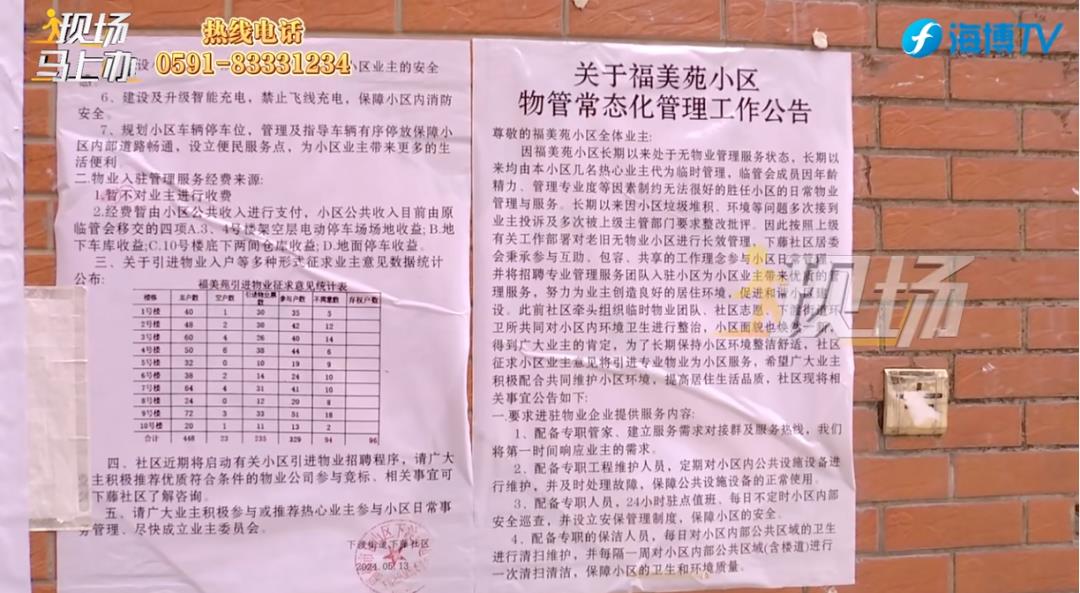 现场
马上办
热线电话
0591-83331234
海博TV
关于福美苑小区
物管常态化管理工作公告
尊敬的福美苑小区全体业主:
因福美苑小区长期以来处于无物业管理服务状态，长期以
来均由本小区几名热心业主代为临时管理，临管会成员因年龄
精力、管理专业度等因素制约无法很好的胜任小区的日常物业
管理与服务。长期以来因小区垃圾堆积、环境等问题多次接到
业主投诉及多次被上级主管部门要求整改批评。因此按照上级
有关工作部署对老旧无物业小区进行长效管理，下藤社区居委
会秉承参与互助、包容、共享的工作理念参与小区日
并将招聘专业管理服务团队入驻小区为小区业主带来优质的管
理服务，努力为业主创造良好的居住环境，促进和谐小区建
设。此前社区牵头组织临时物业团队、社区志愿、下渡街道环
卫所共同对小区内环境卫生进行整治，小区面貌也焕
得到广大业主的肯定，为了长期保持小区环境整洁舒适，社区
征求小区业主意见将引进专业物业为小区服务，希望广大业主
积极配合共同维护小区环境，提高居住生活品质，社区现将相
关事宜公告如下:
一.要求进驻物业企业提供服务内容:
1、配备专职管家、建立服务需求对接群及服务热线，我们
将第一时间响应业主的需求。
2、配备专职工程维护人员，定期对小区内公共设施设备进
行维护，并及时处理故障，保障公共设施设备的正常使用。
3、配备专职人员，24小时驻点值班、每日不定时小区内部
安全巡查，并设立安保管理制度，保障小区的安全。
4、配备专职的保洁人员，每日对小区内部公共区域的卫生
进行清扫维护，并每隔一周对小区内部公共区域(含楼道)进行
一次清扫清洁，保障小区的卫生和环境质量。
小区业主的安全
6、建设及升级智能充电，禁止飞线充电，保障小区内消防
安全。
7、规划小区车辆停车位，管理及指导车辆有序停放保障小
区内部道路畅通，设立便民服务点，为小区业主带来更多的生
活便利
二.物业入驻管理服务经费来源:
1.暂不对业主进行收费
2.经费暂由小区公共收入进行支付，小区公共收入目前由原
临管会移交的四项A.3、4号楼架空层电动停车场场地收益;B.地
下车库收益;C.10号楼底下两间仓库收益;D.地面停车收益。
三、关于引进物业入户等多种形式征求业主意见数据统计
公布:
福美苑引进物业征求意见统计表
楼栋 总户数 空户数 引进物业票数 参与户数 不同意数 弃权户数
1号楼 40 1 30 35 5
2号楼 48 2 30 42 12
3号楼 60 4 26 40 14
4号楼 50 6 38 44 6
5号楼 32 1 10 19 9
6号楼 38 2 14 24 10
7号楼 64 4 31 41 10
8号楼 24 0 12 20 8
9号楼 72 3 33 51 18
10号楼 20 1 11 13 2
合计 448 23 235 329 94 96
四、社区近期将启动有关小区引进物业招聘程序，请广大
业主积极推荐优质符合条件的物业公司参与竞标、相关事宜可
下藤社区了解咨询。
五、请广大业主积极参与或推荐热心业主参与小区日常事
务管理、尽快成立业主委员会。
下渡街道下藤社区
2024.05.13
现场